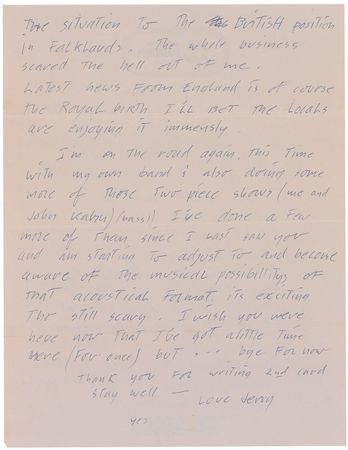 The situation to the British position
in Falklands. The whole business
scared the hell out of me.
Latest news from England is of course
the Royal birth I'll bet the locals
are enjoying it immensly
I'm on the road again, this time
with my own band & also doing some
more of those two piece shows (me and
John Kahn)(bass)) I've done a few
more of them since I last saw you
and am starting to adjust to and become
aware of the musical possibilitys of
that acoustical format, its exciting
tho still scary. I wish you were
here now that I've got a little time
here (for once) but ... bye for now
Thank you for writing and
stay well — Love Jerry
yes